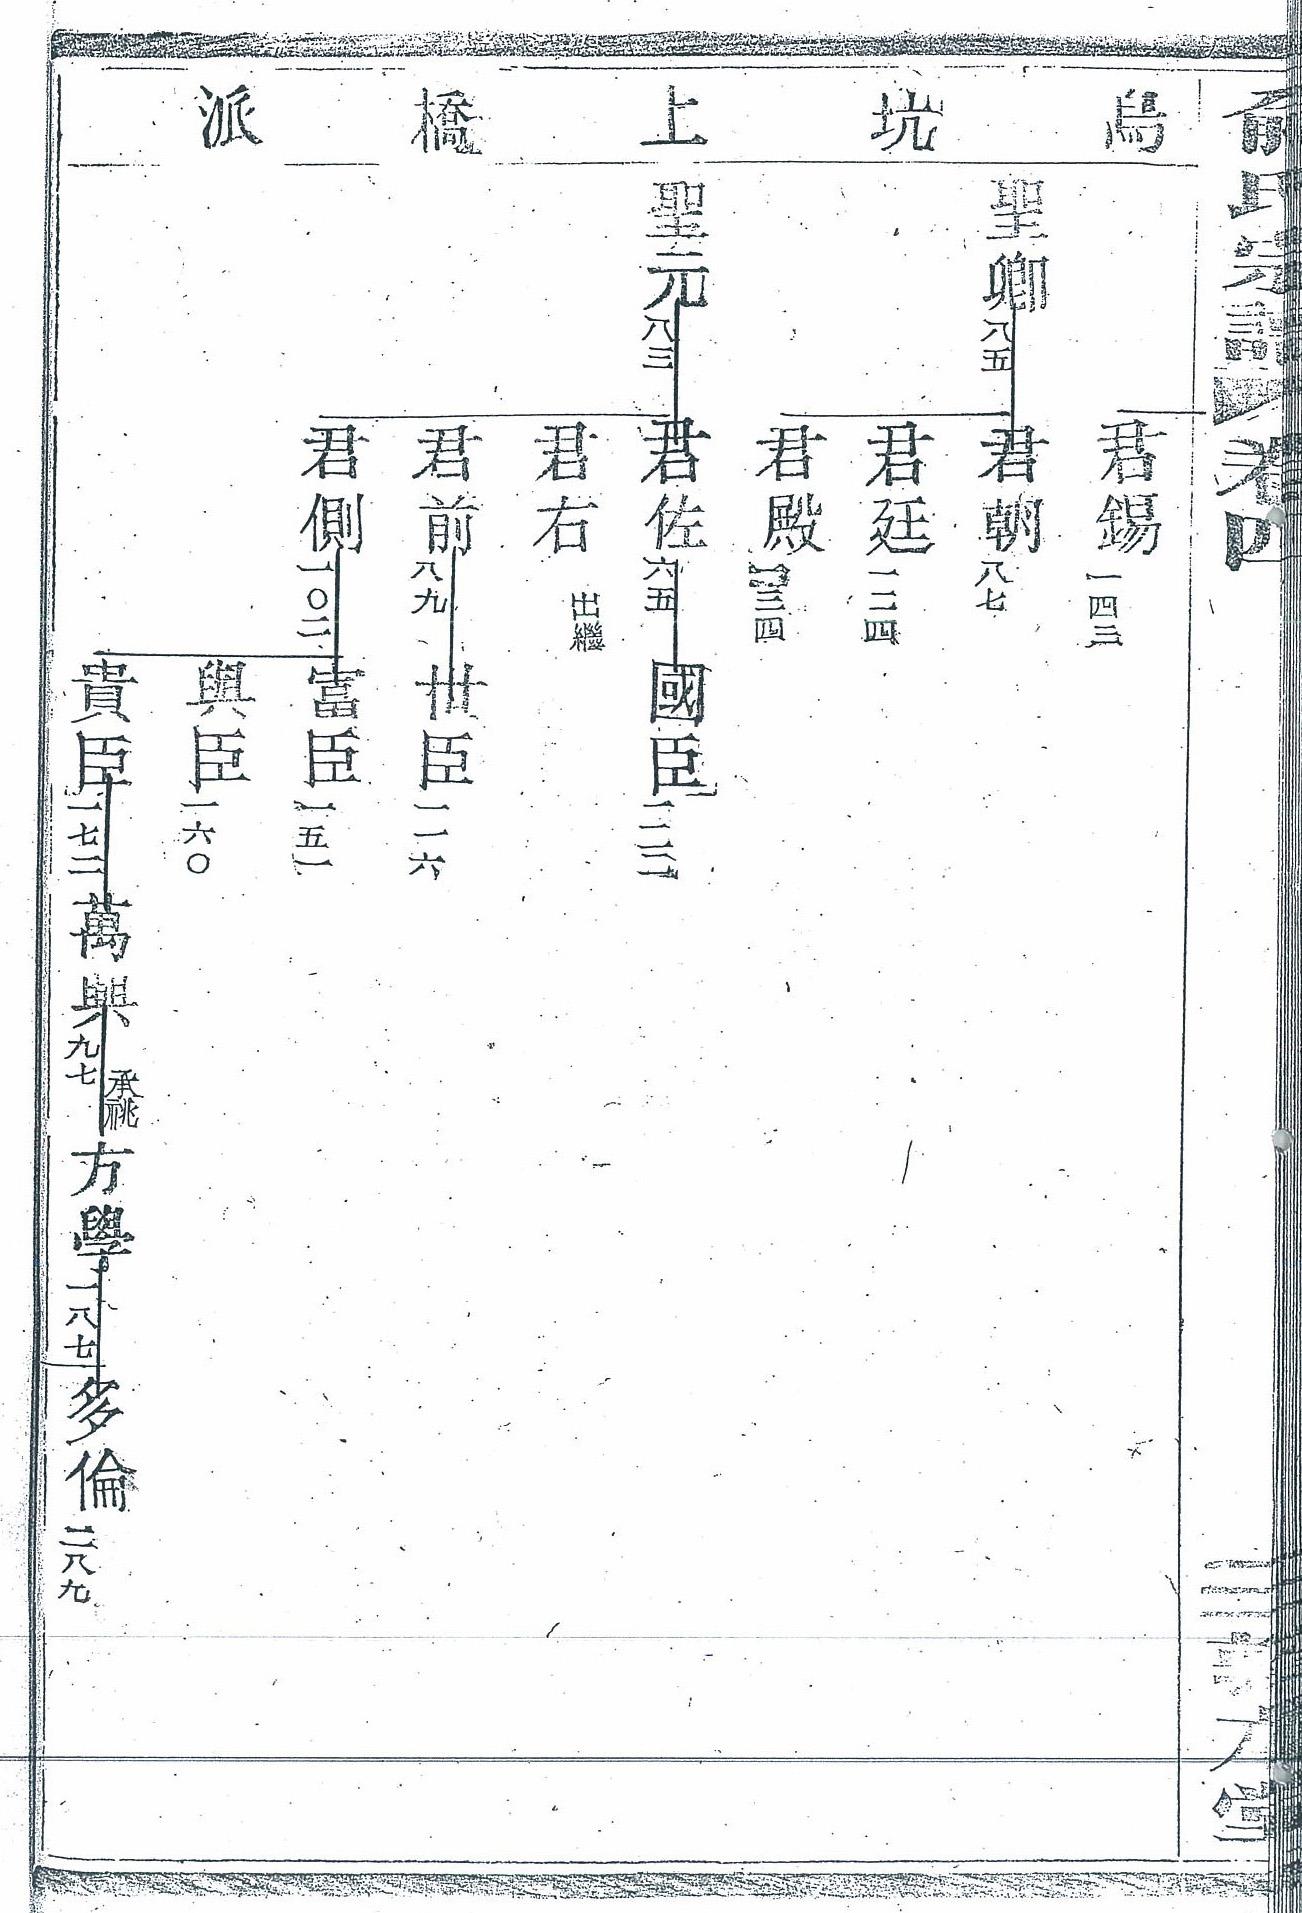 俞氏宗譜 卷四
烏坑上橋派
君錫 一四三
聖卿 八五
君朝 八七
君廷 一二四
君殿 一三四
聖元 八三
君佐 六五
國臣 一二二
君右 出繼
君前 八九
世臣 一一六
君側 一〇二
富臣 一五一
興臣 一六〇
貴臣 一七二
萬興 九七 承祧
方學 一八七
多倫 二八九